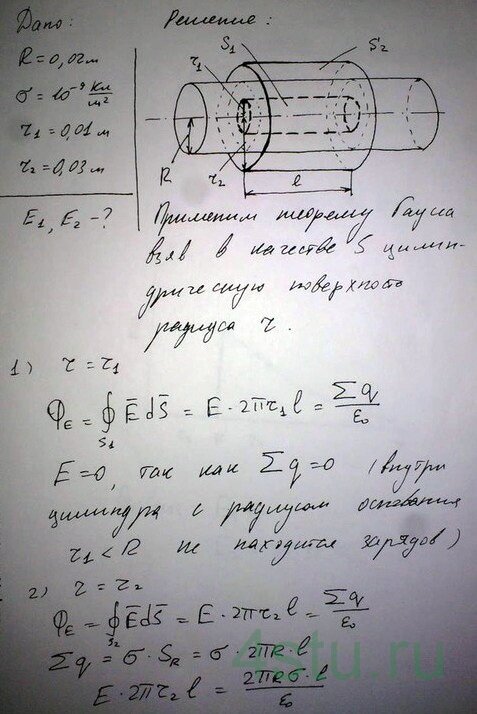 Дано:
Решение:
R = 0,02 м
σ = 10⁻⁹ Кл/м²
τ₁ = 0,01 м
τ₂ = 0,03 м
E₁, E₂ - ?
S₁
S₂
τ₁
R
τ₂
l
Применим теорему Гаусса
взяв в качестве S цилин-
дрическую поверхность
радиуса τ.
1) τ = τ₁
Φ_E = ∮_S₁ E̅ dS̅ = E · 2πτ₁ l = Σq/ε₀
E = 0, так как Σq = 0 (внутри
цилиндра с радиусом основания
τ₁ < R не находится зарядов)
2) τ = τ₂
Φ_E = ∮_S₂ E̅ dS̅ = E · 2πτ₂ l = Σq/ε₀
Σq = σ · S_R = σ · 2πR · l
E · 2πτ₂ l = 2πRσ · l/ε₀
4stu.ru